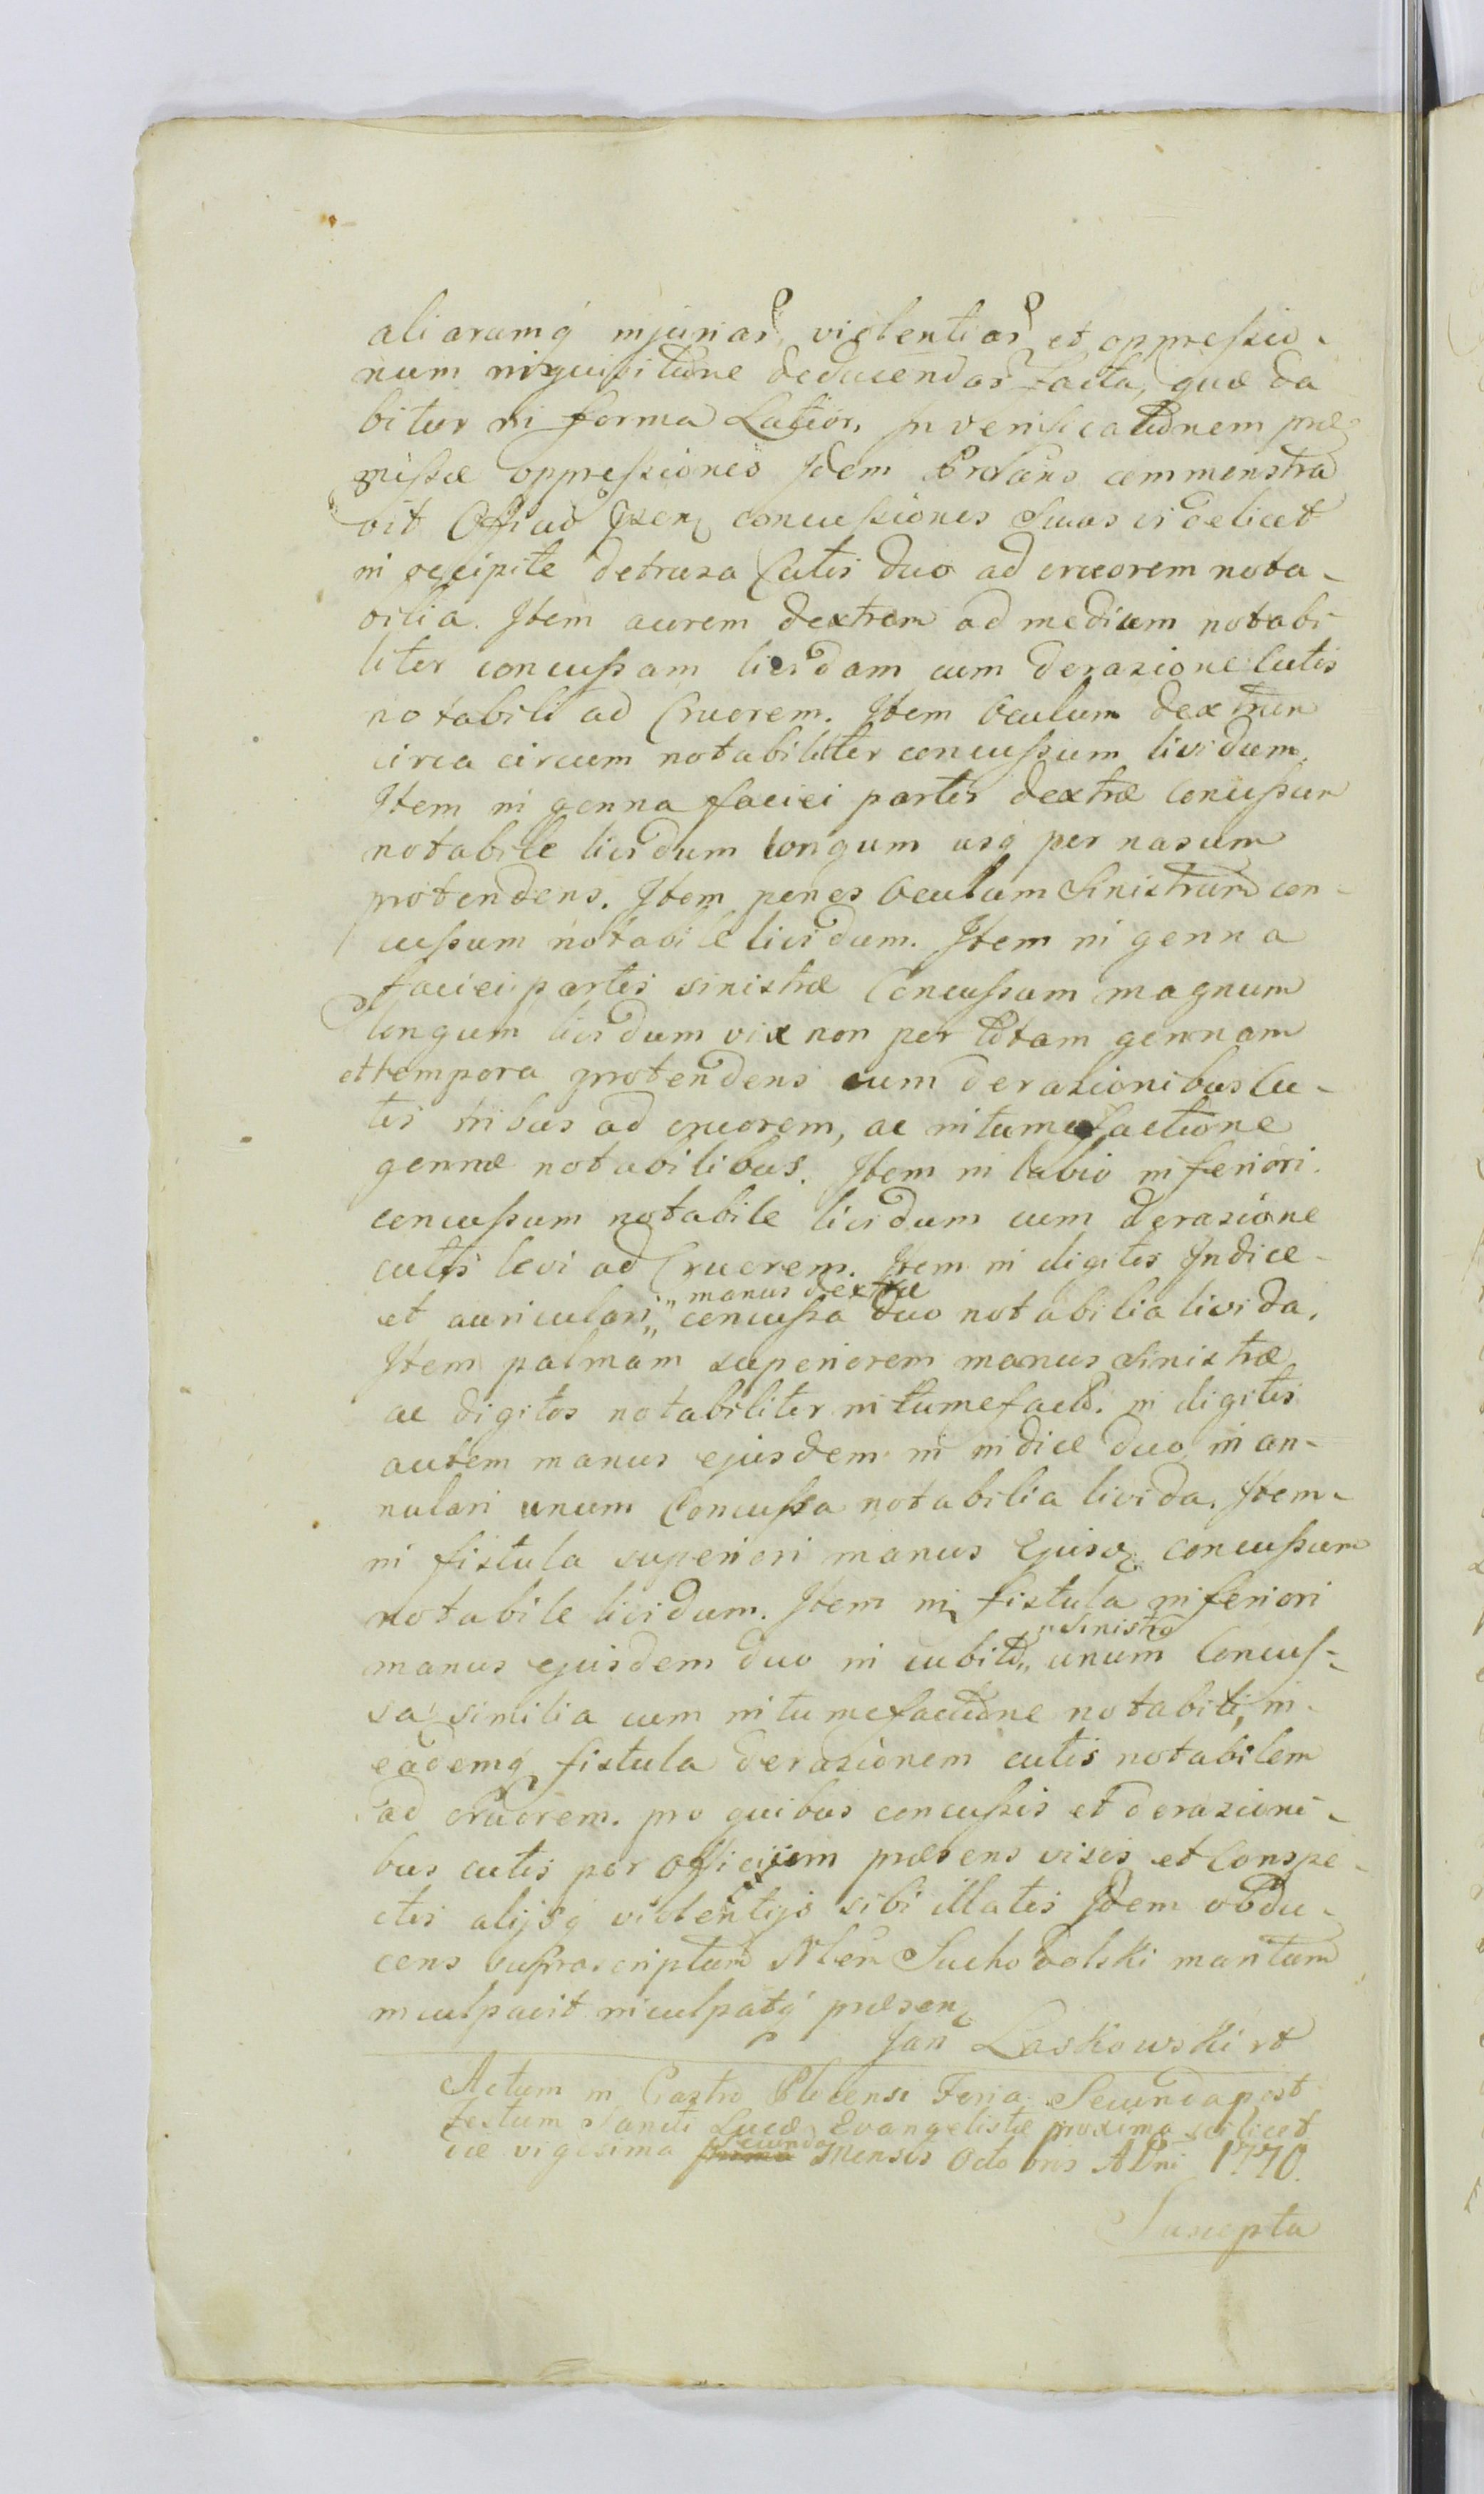 aliarumq́ injuriar violentiar et oppressio-
num inquisitione deducendar facta, quæ da
bitur in forma Latior. In verificationem præ
missæ oppressiones Idem Protans commonstra
vit Offi ad Psen concussiones Suas videlicet
in occipite detrusa Cutis duo ad cruorem nota-
bilia. Item aurem dextram ad medium notabi
liter concussam lividam cum derasione Cutis
notabili ad Cruorem. Item Oculum dextrum
circa circum notabiliter concussum lividum.
Item in genna faciei partis dextræ Concussum
notabile lividum longum usq́ per nasum
protendens. Item penes Oculum Sinistrum con-
cussum notabile lividum. Item in genna
faciei partis sinistræ Concussum magnum
longum lividum vix non per totam gennam
et tempora protendens cum derasionibus Cu-
tis tribus ad cruorem, ac intumefactione
gennæ notabilibus. Item in labio inferiori
concussum notabile lividum cum derasione
cutis levi ad Cruorem. Item in digitis Indice
et auriculari „manus dextræ„ concussa duo notabilia livida.
Item palmam superiorem manus Sinistræ
ac digitos notabiliter intumefact. in digitis
autem manus ejusdem in indice duo, in an-
nulari unum Concussa notabilia livida. Item
in fistula superiori manus Ejusd concussum
notabile lividum. Item in fistula inferiori
manus ejusdem duo in cubito „sinistro„ unum Concus-
sa similia cum intumefactione notabili, in
eademq́ fistula derasionem cutis notabilem
ad cruorem. pro quibus concussis et derasioni-
bus cutis per Officium præsens visis et Conspe-
ctis alijsq́ violentijs sibi illatis Idem obdu-
cens suprascriptum Nlem Suchodolski mantum
inculpavit inculpatq́ præsen
Jan Laskowski
Actum in Castro Plocensi Feria Secunda post
festum Sancti Lucæ Evangelistæ proxima scilicet
die vigesima prima secunda Mensis Octobris ADni 1770.
Suscepta